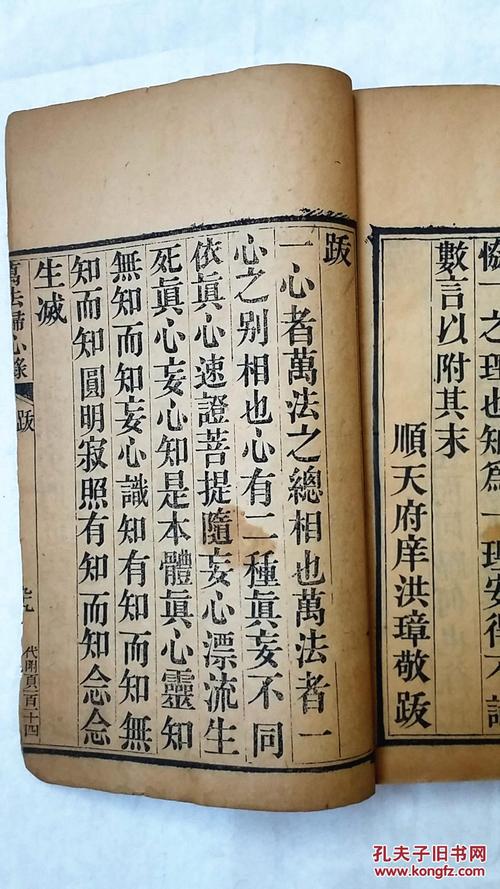 恊一之理也知爲一理安得不
數言以附其末
順天府庠洪璋敬跋
跋
一心者萬法之總相也萬法者一
心之别相也心有二種眞妄不同
依眞心速證菩提隨妄心漂流生
死眞心妄心知是本體眞心靈知
無知而知妄心識知有知而知無
知而知圓明寂照有知而知念念
生滅
萬法歸心錄
跋
代明頁一百十四
孔夫子旧书网
www.kongfz.com